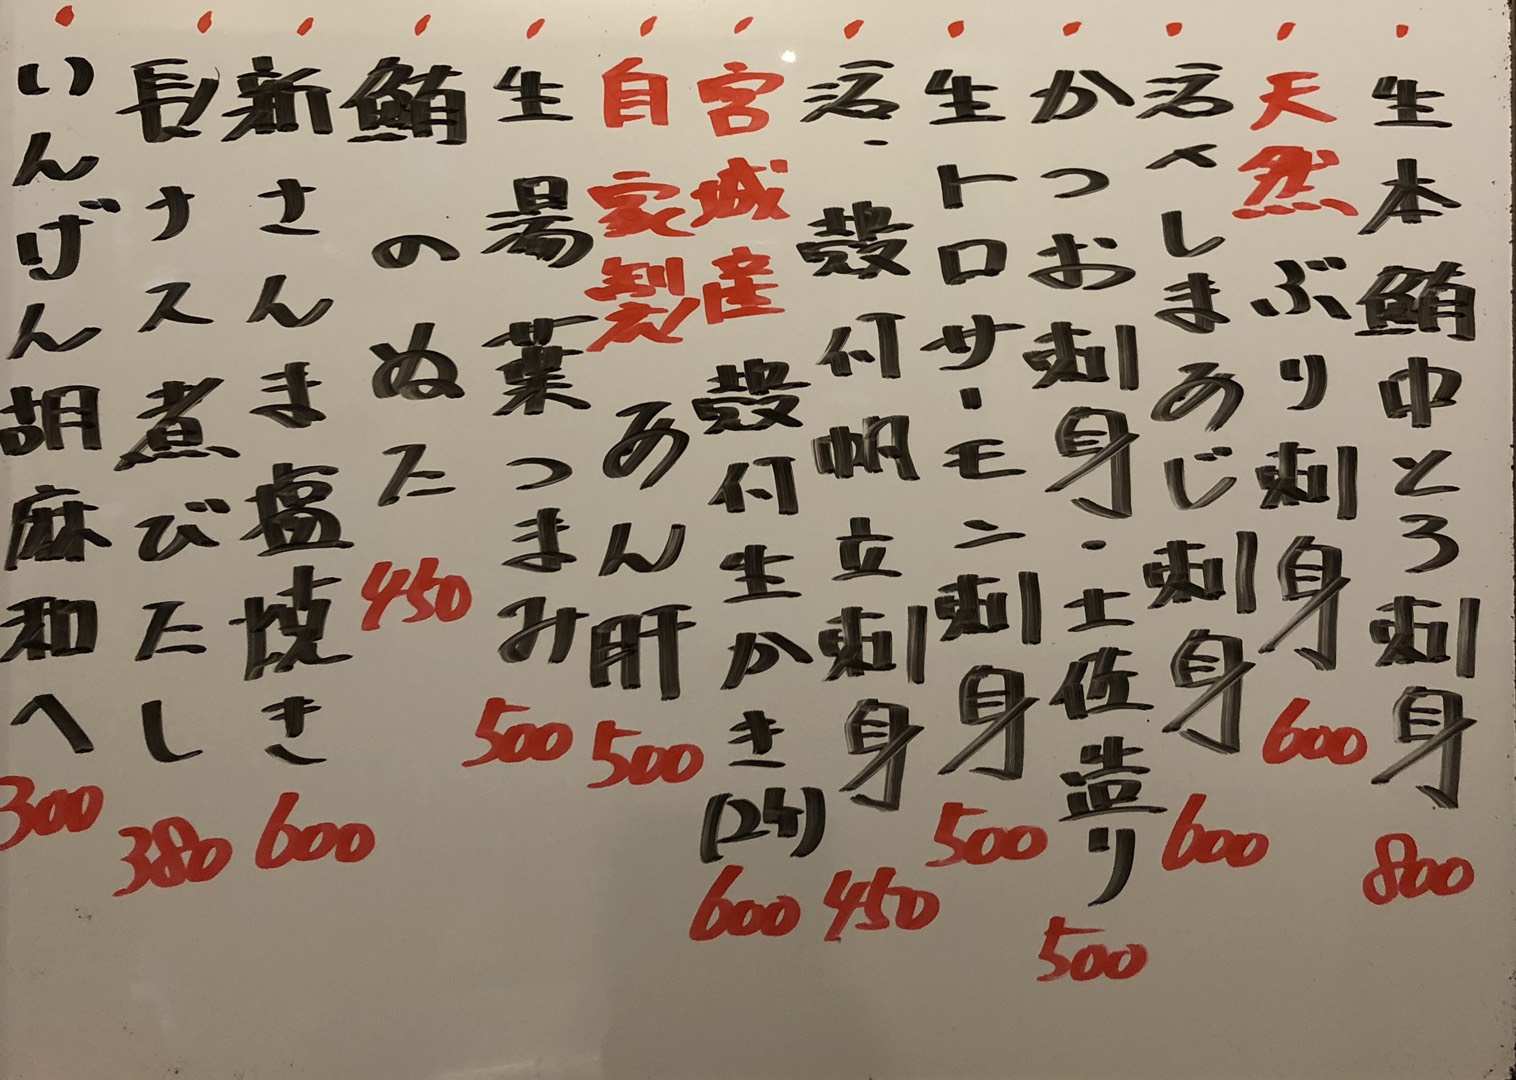 生本鮪中とろ刺身 800
天然ぶり刺身 600
活〆しまあじ刺身 600
かつお刺身・土佐造り 500
生トロサーモン刺身 500
活・殻付帆立刺身 450
宮城産殻付生かき(2ケ) 600
自家製あん肝 500
生湯葉つまみ 500
鮪のぬた 450
新さんま塩焼き 600
長ナス煮びたし 380
いんげん胡麻和へ 300